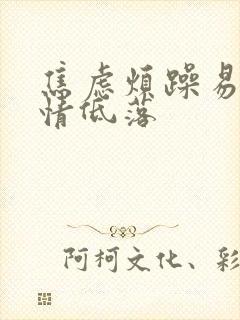 焦虑烦躁易
情低落
阿柯文化、彩